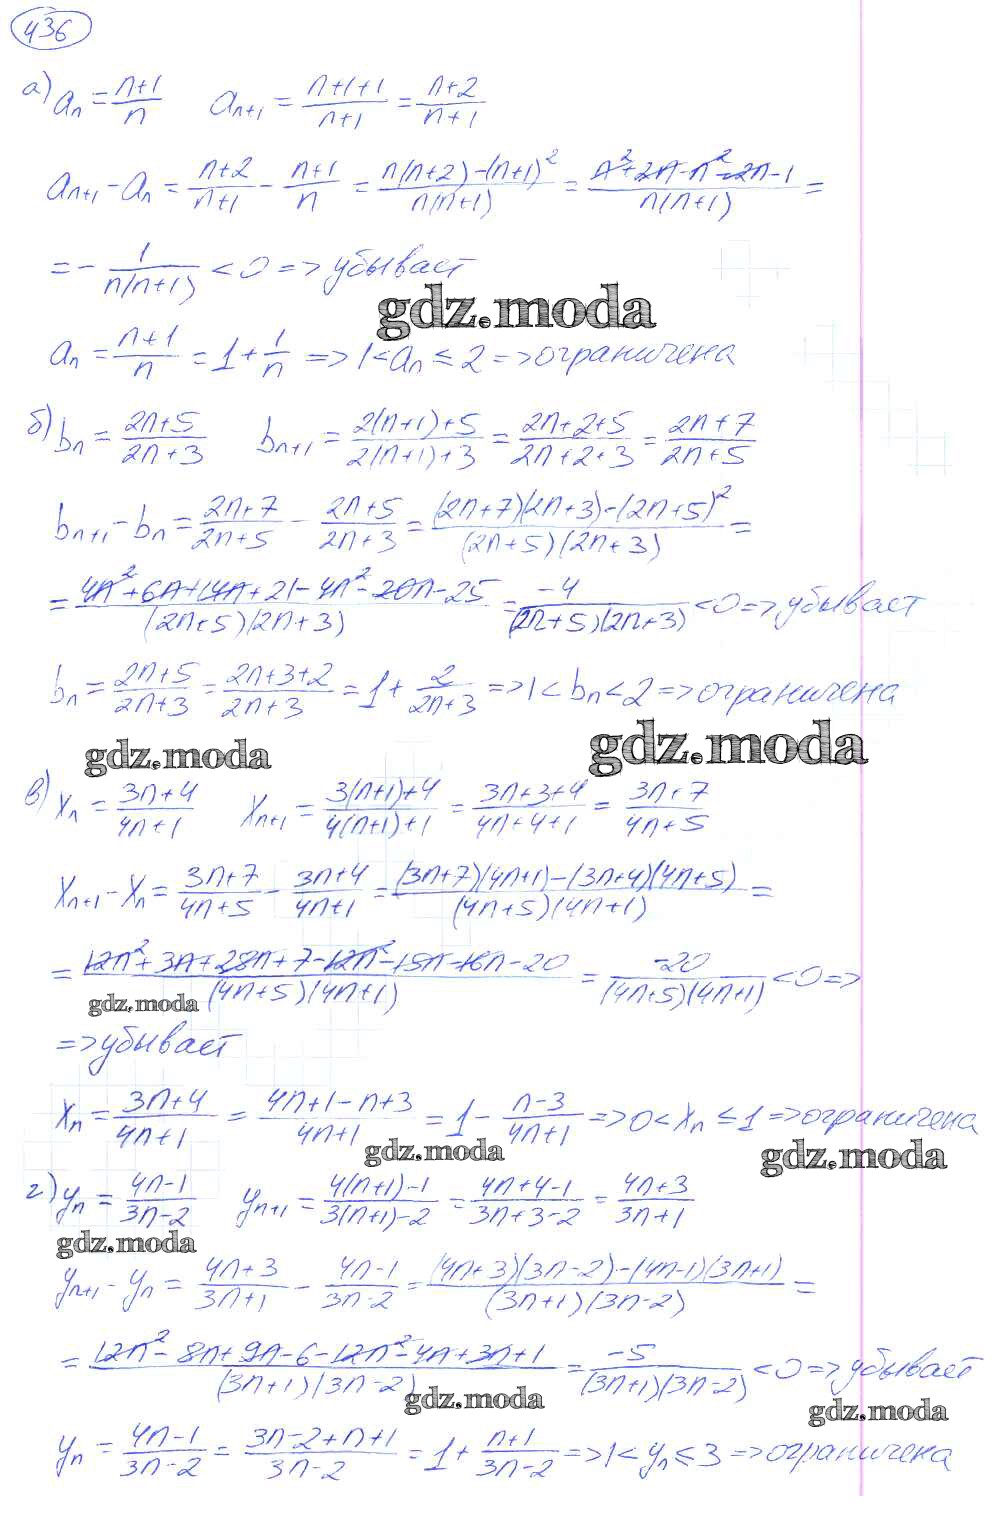 436
а) aₙ = (n+1)/n    aₙ₊₁ = (n+1+1)/(n+1) = (n+2)/(n+1)
aₙ₊₁ - aₙ = (n+2)/(n+1) - (n+1)/n = (n(n+2)-(n+1)²)/(n(n+1)) = (n²+2n-n²-2n-1)/(n(n+1)) =
= - 1/(n(n+1)) < 0 => убывает
gdz.moda
aₙ = (n+1)/n = 1 + 1/n => 1 < aₙ ≤ 2 => ограничена
б) bₙ = (2n+5)/(2n+3)    bₙ₊₁ = (2(n+1)+5)/(2(n+1)+3) = (2n+2+5)/(2n+2+3) = (2n+7)/(2n+5)
bₙ₊₁ - bₙ = (2n+7)/(2n+5) - (2n+5)/(2n+3) = ((2n+7)(2n+3)-(2n+5)²)/((2n+5)(2n+3)) =
= (4n²+6n+14n+21-4n²-20n-25)/((2n+5)(2n+3)) = -4/((2n+5)(2n+3)) < 0 => убывает
bₙ = (2n+5)/(2n+3) = (2n+3+2)/(2n+3) = 1 + 2/(2n+3) => 1 < bₙ < 2 => ограничена
gdz.moda gdz.moda
в) xₙ = (3n+4)/(4n+1)    xₙ₊₁ = (3(n+1)+4)/(4(n+1)+1) = (3n+3+4)/(4n+4+1) = (3n+7)/(4n+5)
xₙ₊₁ - xₙ = (3n+7)/(4n+5) - (3n+4)/(4n+1) = ((3n+7)(4n+1)-(3n+4)(4n+5))/((4n+5)(4n+1)) =
= (12n²+3n+28n+7-12n²-15n-16n-20)/((4n+5)(4n+1)) = -20/((4n+5)(4n+1)) < 0 =>
gdz.moda
=> убывает
xₙ = (3n+4)/(4n+1) = (4n+1-n+3)/(4n+1) = 1 - (n-3)/(4n+1) => 0 < xₙ ≤ 1 => ограничена
gdz.moda gdz.moda
г) yₙ = (4n-1)/(3n-2)    yₙ₊₁ = (4(n+1)-1)/(3(n+1)-2) = (4n+4-1)/(3n+3-2) = (4n+3)/(3n+1)
gdz.moda
yₙ₊₁ - yₙ = (4n+3)/(3n+1) - (4n-1)/(3n-2) = ((4n+3)(3n-2)-(4n-1)(3n+1))/((3n+1)(3n-2)) =
= (12n²-8n+9n-6-12n²-4n+3n+1)/((3n+1)(3n-2)) = -5/((3n+1)(3n-2)) < 0 => убывает
gdz.moda gdz.moda
yₙ = (4n-1)/(3n-2) = (3n-2+n+1)/(3n-2) = 1 + (n+1)/(3n-2) => 1 < yₙ ≤ 3 => ограничена